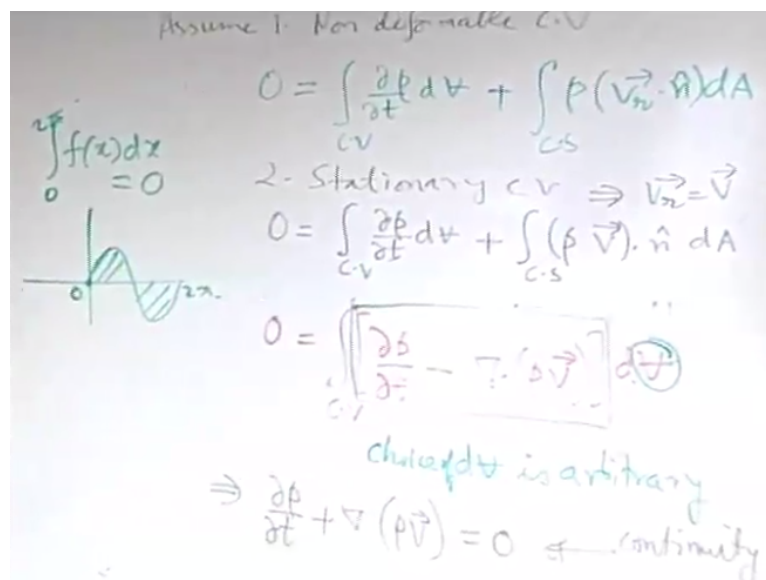 Assume 1. Non deformable C.V
0 = ∫_{CV} ∂ρ/∂t dV + ∫_{C.S} ρ(V⃗r · n̂)dA
∫_0^{2π} f(x)dx = 0
2. Stationary CV ⇒ V⃗r = V⃗
0 = ∫_{C.V} ∂ρ/∂t dV + ∫_{C.S} (ρ V⃗) . n̂ dA
0 2π
0 = ∫_{C.V} [∂ρ/∂t - ∇.(ρV⃗)] dV
choice of dV is arbitrary
⇒ ∂ρ/∂t + ∇ (ρV⃗) = 0 ← continuity